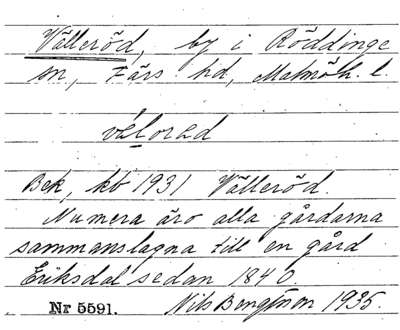 Välleröd, by i Röddinge
sn, Färs hd, Malmöh. l.
vélorəd
Bek, kb 1931 Välleröd.
Numera äro alla gårdarna
sammanslagna till en gård
Eriksdal sedan 1840.
Nr 5591. Nils Bengtsson 1935.